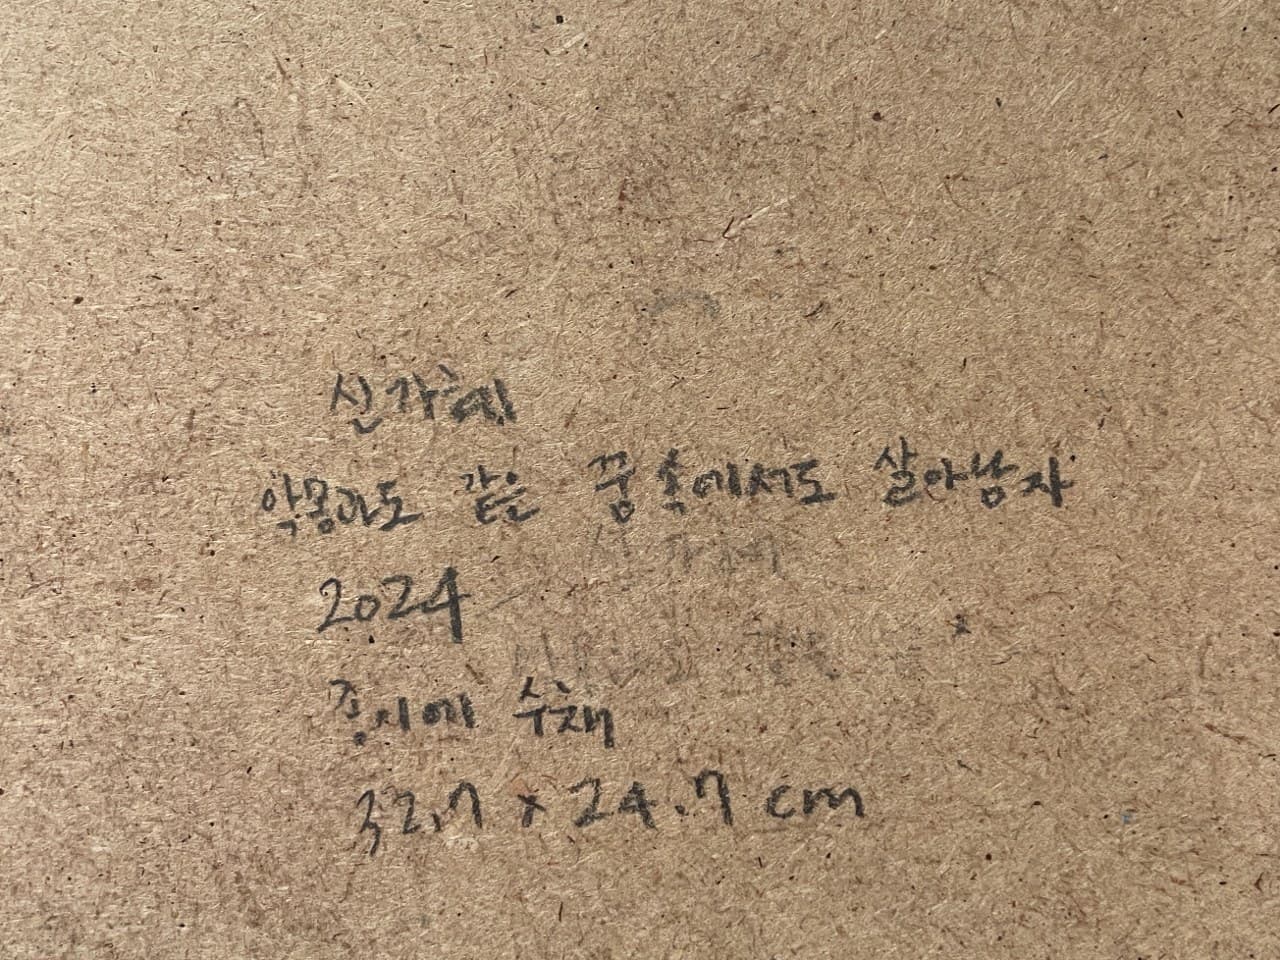 신가혜
악몽과도 같은 꿈 속에서도 살아남자
2024
종이에 수채
32.7 x 24.7 cm